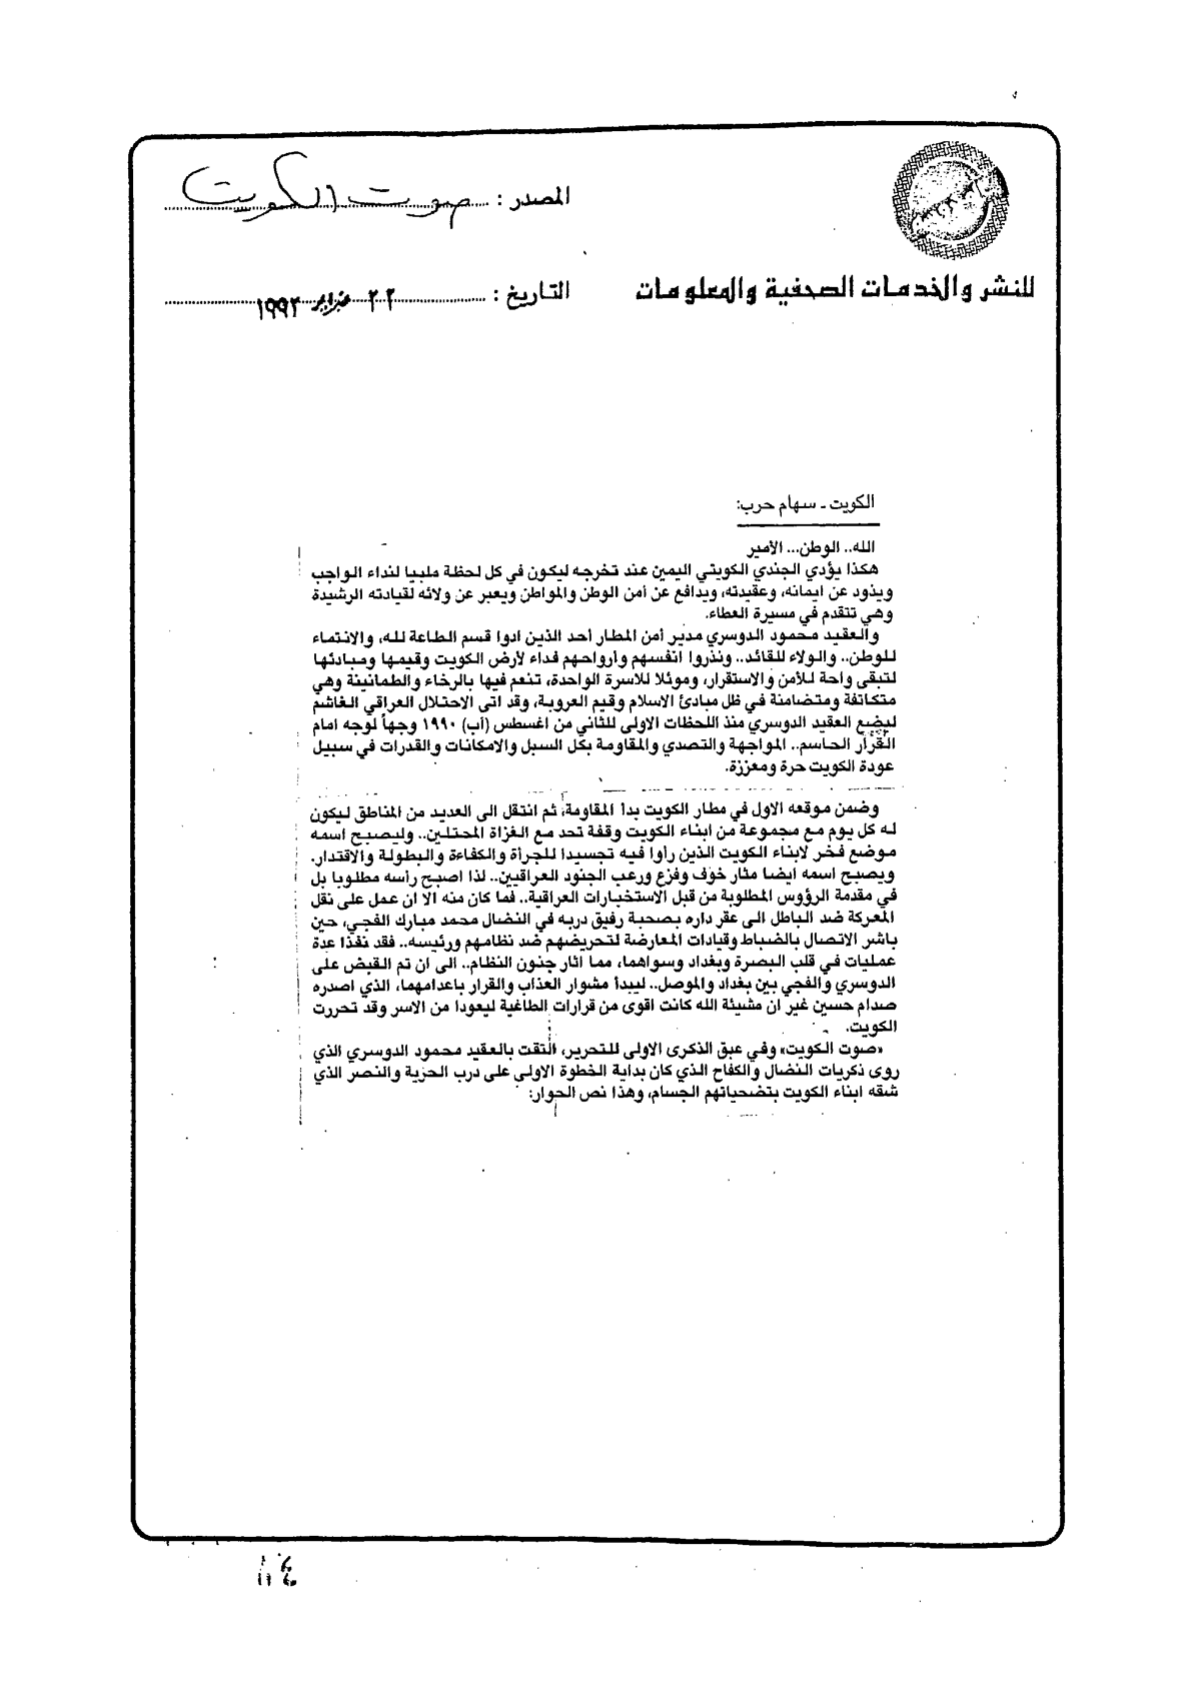 المصدر : صوت الكويت
للنشر والخدمات الصحفية والمعلومات
التاريخ : ٢٢ فبراير ١٩٩٢
الكويت ـ سهام حرب:
الله.. الوطن... الأمير
هكذا يؤدي الجندي الكويتي اليمين عند تخرجه ليكون في كل لحظة ملبيا لنداء الواجب
ويذود عن ايمانه، وعقيدته، ويدافع عن أمن الوطن والمواطن ويعبر عن ولائه لقيادته الرشيدة
وهي تتقدم في مسيرة العطاء.
والعقيد محمود الدوسري مدير أمن المطار أحد الذين ادوا قسم الطاعة لله، والانتماء
للوطن.. والولاء للقائد.. ونذروا انفسهم وارواحهم فداء لأرض الكويت وقيمها ومبادئها
لتبقى واحة للأمن والاستقرار، وموئلا للاسرة الواحدة، تنعم فيها بالرخاء والطمانينة وهي
متكاتفة ومتضامنة في ظل مبادئ الاسلام وقيم العروبة، وقد اتى الاحتلال العراقي الغاشم
ليضع العقيد الدوسري منذ اللحظات الاولى للثاني من اغسطس (اب) ١٩٩٠ وجهاً لوجه امام
القرار الحاسم.. المواجهة والتصدي والمقاومة بكل السبل والامكانات والقدرات في سبيل
عودة الكويت حرة ومعززة.
وضمن موقعه الاول في مطار الكويت بدأ المقاومة، ثم انتقل الى العديد من المناطق ليكون
له كل يوم مع مجموعة من ابناء الكويت وقفة تحد مع الغزاة المحتلين.. وليصبح اسمه
موضع فخر لابناء الكويت الذين راوا فيه تجسيدا للجرأة والكفاءة والبطولة والاقتدار.
ويصبح اسمه ايضا مثار خوف وفزع ورعب الجنود العراقيين.. لذا اصبح رأسه مطلوبا بل
في مقدمة الرؤوس المطلوبة من قبل الاستخبارات العراقية.. فما كان منه الا ان عمل على نقل
المعركة ضد الباطل الى عقر داره بصحبة رفيق دربه في النضال محمد مبارك الفجي، حين
باشر الاتصال بالضباط وقيادات المعارضة لتحريضهم ضد نظامهم ورئيسه.. فقد نفذا عدة
عمليات في قلب البصرة وبغداد وسواهما، مما اثار جنون النظام.. الى ان تم القبض على
الدوسري والفجي بين بغداد والموصل.. ليبدأ مشوار العذاب والقرار باعدامهما، الذي اصدره
صدام حسين غير ان مشيئة الله كانت اقوى من قرارات الطاغية ليعودا من الاسر وقد تحررت
الكويت.
«صوت الكويت» وفي عبق الذكرى الاولى للتحرير، التقت بالعقيد محمود الدوسري الذي
روى ذكريات النضال والكفاح الذي كان بداية الخطوة الاولى على درب الحرية والنصر الذي
شقه ابناء الكويت بتضحياتهم الجسام، وهذا نص الحوار: